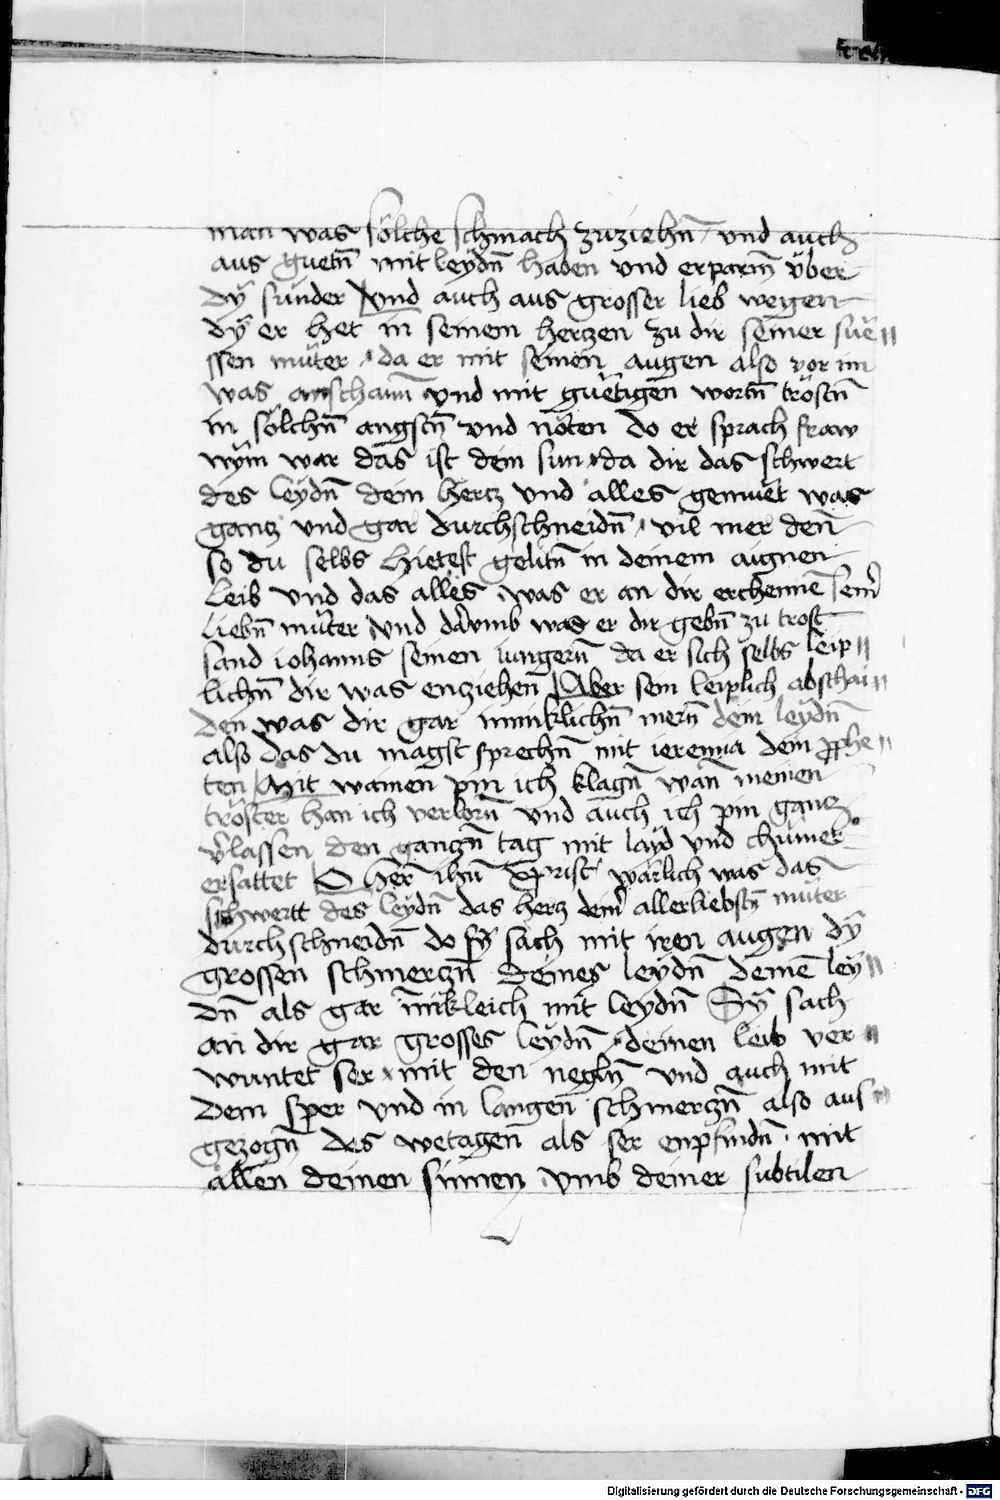 man was sölche schmach zuziehn̄ / vnd auch
aus guetn̄ mit leÿdn̄ haben vnd erparm̄ vber
dÿ sünder Vnd auch aus grosser lieb wegen
dÿ er het in seinem hertzen zu dir seiner sue̋ //
ssen mu̇ter / da er mit seinen augen also vor im
was anschaun̄ vnd mit gue̋tigen̄ wortn̄ tröstn̄
in sölchn̄ angstn̄ vnd nöten do er sprach fraw
nÿm war das ist dein sun / da dir das schwert
des leÿdn̄ dein hertz vnd alles gemuet was
gantz vnd gar durchschneidn̄ / vil mer den̄
so du selbs hietest gelitn̄ in deinem aignen
Leib vnd das alles was er an dir erchennē sein͛
liebn̄ mu̇ter Vnd darvmb was er dir gebn̄ zu trost
sand iohanns seinen iungern̄ da er sich selbs leip //
lichn̄ dir was encziehen̄ Aber sein leiplich abschai //
den was dir gar inniklichn̄ mern̄ dein leÿdn̄
also das du magst sprechn̄ mit ieremia dem p̱phe //
ten Mit wainen pin ich klagn̄ wan̄ meinen
tröster han ich verlorn̄ vnd auch ich pin gantz
v͛lassen den gantzn̄ tag mit layd vnd chumer
ersattet O Her̄ ihū Xp̄rist wärlich was das
schwertt des leÿdn̄ das hertz dein͛ allerliebstn̄ muter
durchschneidn̄ do sÿ sach mit iren augen dÿ
grossen schmerczn̄ deines leÿdn̄ deinē leÿ //
dn̄ als gar in̄ikleich mit leÿdn̄ Sÿ sach
an dir gar grosses leÿdn̄ deinen leib ver //
wuntet ser mit den negln̄ vnd auch mit
dem sper vnd in langen̄ schmerczn̄ also aus //
gezogn̄ des wetagen̄ als ser enpfindn̄ · mit
allen deinen sinnen vmb deiner subtilen
Digitalisierung gefördert durch die Deutsche Forschungsgemeinschaft - DFG